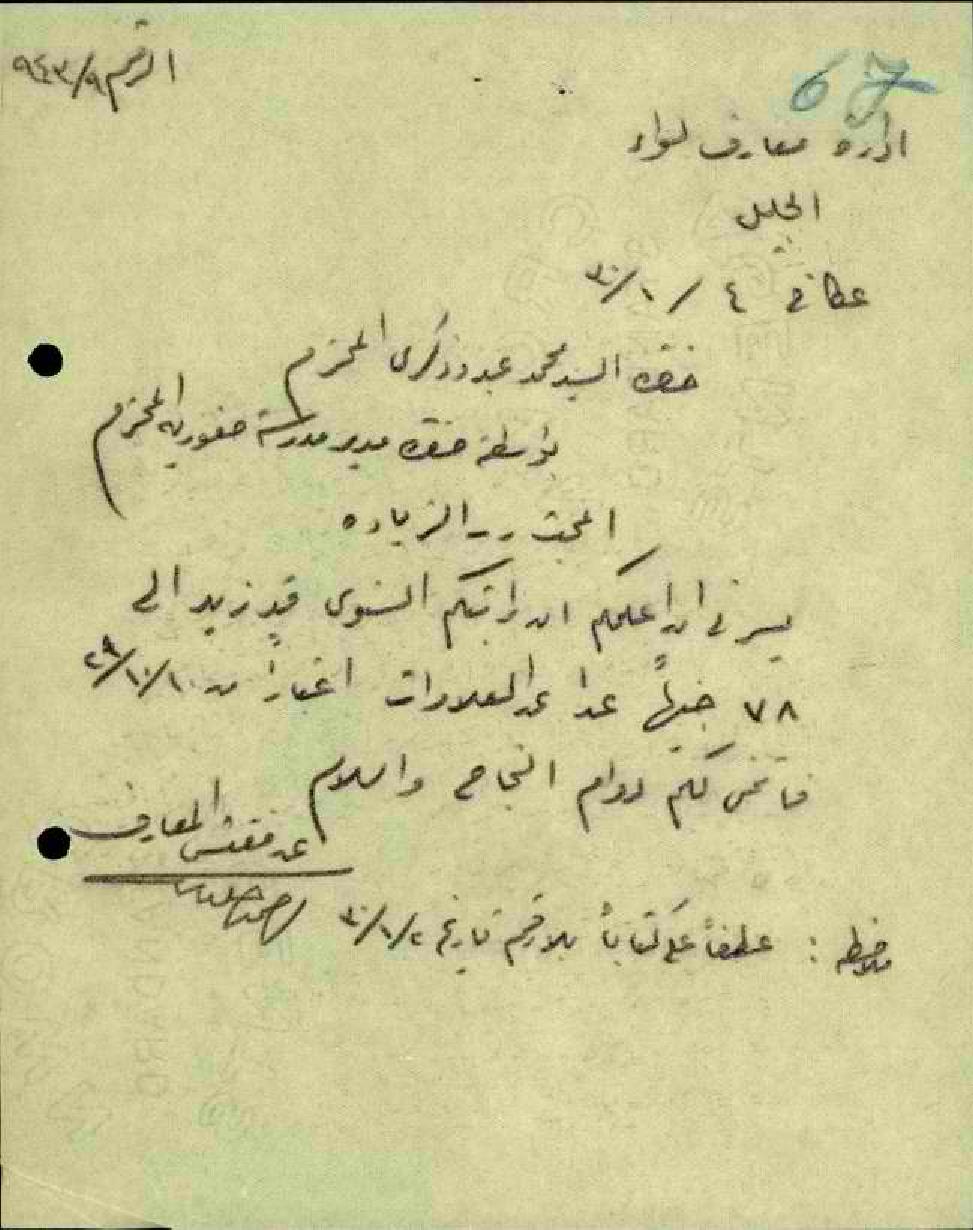 الرقم ٩٤٣/٩
67
ادارة معارف لواء
الجليل
عكا في ٤ /١/٣٠
حضرة السيد محمد عبده زكري المحترم
بواسطة حضرة مدير مدرسة صفورية المحترم
المبحث :- الزيادة
يسرني ان اعلمكم ان راتبكم السنوي قد زيد الى
٧٨ جنيهاً عدا عن العلاوات اعتباراً من ١/١٠/٢٩
فاتمنى لكم دوام النجاح والسلام
عن مفتش المعارف
ملاحظه : عطفاً على كتابنا بلا رقم تاريخ ٢/١/٣٠